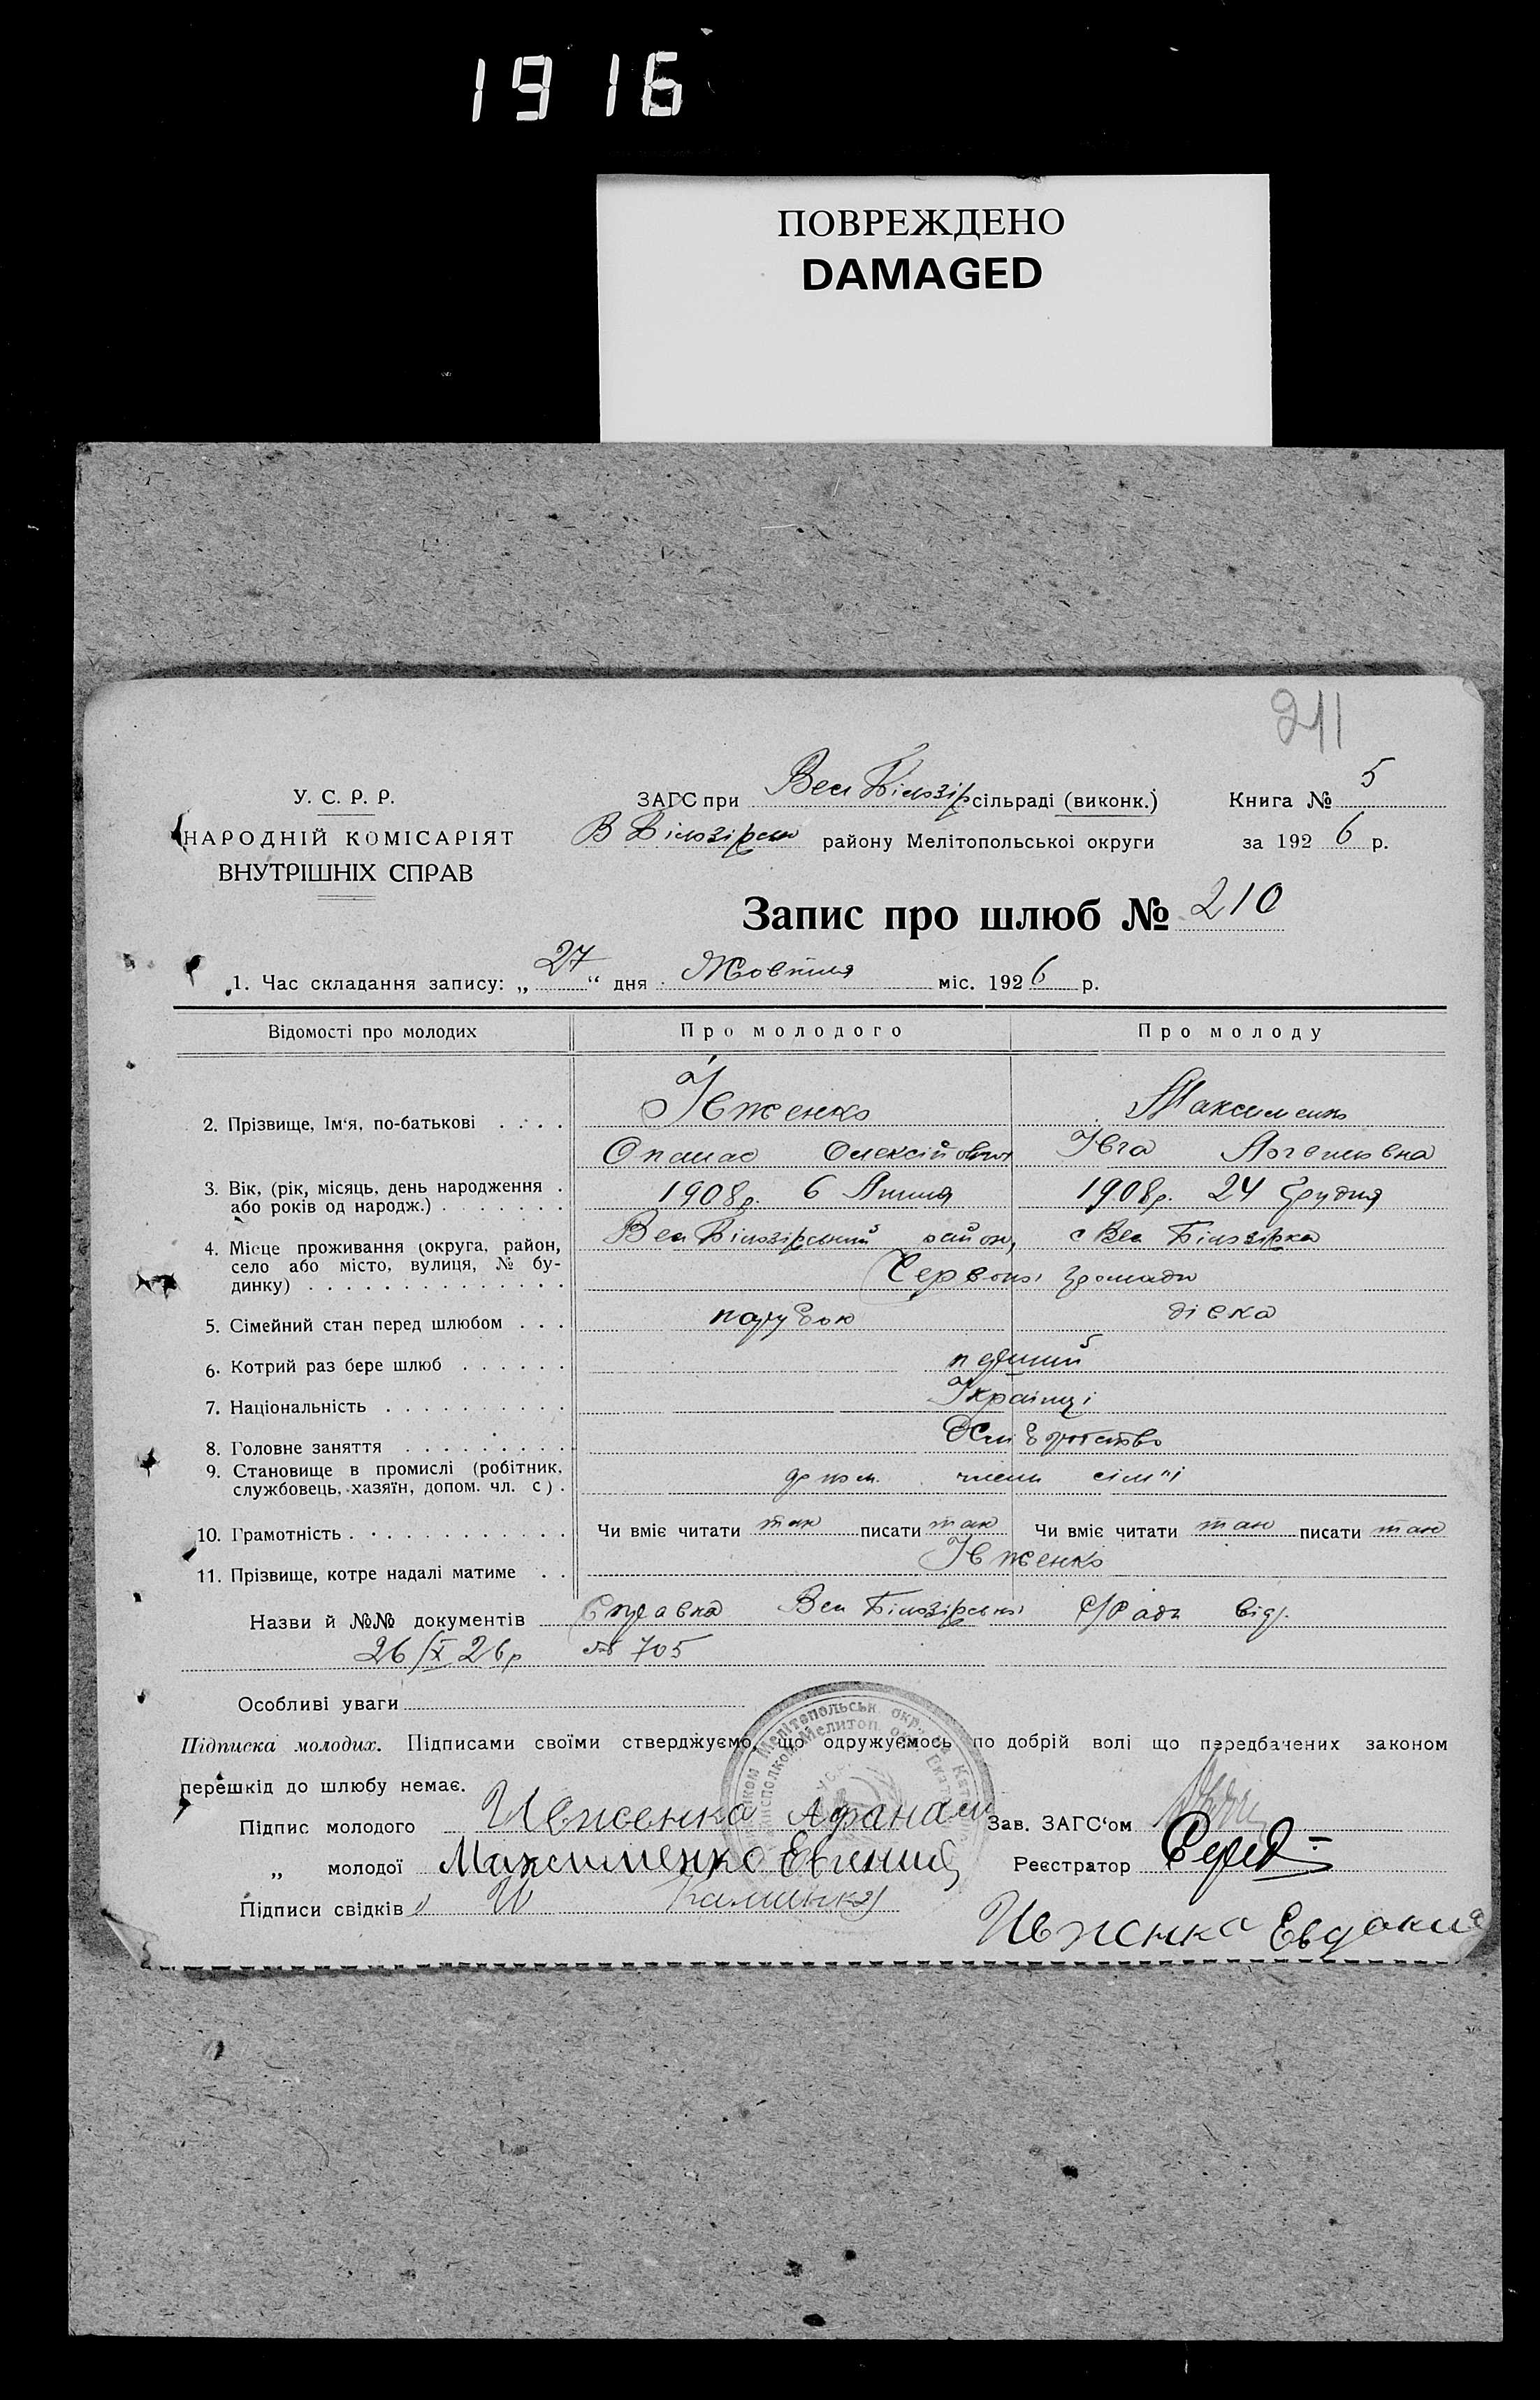 1916
ПОВРЕЖДЕНО
DAMAGED
211
У. С. Р. Р.
НАРОДНІЙ КОМІСАРІЯТ
ВНУТРІШНІХ СПРАВ
ЗАГС при Вел Білозір сільраді (виконк.)
В Білозірськ району Мелітопольської округи
Книга № 5
за 1926 р.
Запис про шлюб № 210
1. Час складання запису: „27“ дня Жовтня міс. 1926 р.
Відомості про молодих Про молодого Про молоду
2. Прізвище, Ім'я, по-батькові . . . . Івженко Максименко
Опанас Олексійович Івга Логвиновна
3. Вік, (рік, місяць, день народження . або років од народж.) . . . . . . . 1908 р. 6 Липня 1908 р. 24 Грудня
4. Місце проживання (округа, район, село або місто, вулиця, № будинку) . . . . . . . . . . . . . Вел Білозірський район, с Вел Білозірка
Червоної громади
5. Сімейний стан перед шлюбом . . . парубок дівка
6. Котрий раз бере шлюб . . . . . . перший
7. Національність . . . . . . . . . . Українці
8. Головне заняття . . . . . . . . . Хліборобство
9. Становище в промислі (робітник, службовець, хазяїн, допом. чл. с) . допом. члени сім'ї
10. Грамотність . . . . . . . . . . . . Чи вміє читати так писати так Чи вміє читати так писати так
11. Прізвище, котре надалі матиме . . Івженко
Назви й №№ документів Справка Вел Білозірської С/Ради від
26/X 26р № 705
Особливі уваги
Підписка молодих. Підписами своїми стверджуємо, що одружуємось по добрій волі що передбачених законом
перешкід до шлюбу немає.
Підпис молодого Ивженко Афанаси Зав. ЗАГС'ом
„ молодої Максименко Евгения Реєстратор
Підписи свідків
Ивженко Евдокия